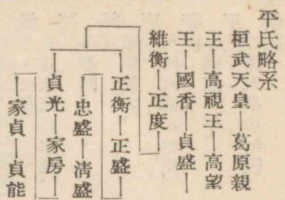 平氏略系
桓武天皇―葛原親
王―高視王―高望
王―國香―貞盛―
維衡―正度―
正衡―正盛―
忠盛―淸盛
貞光―家房―
家貞―貞能